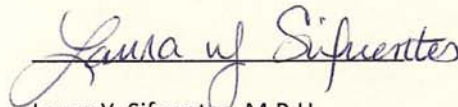 Laura Y Sifuentes
Laura Y. Sifuentes, M.P.H.